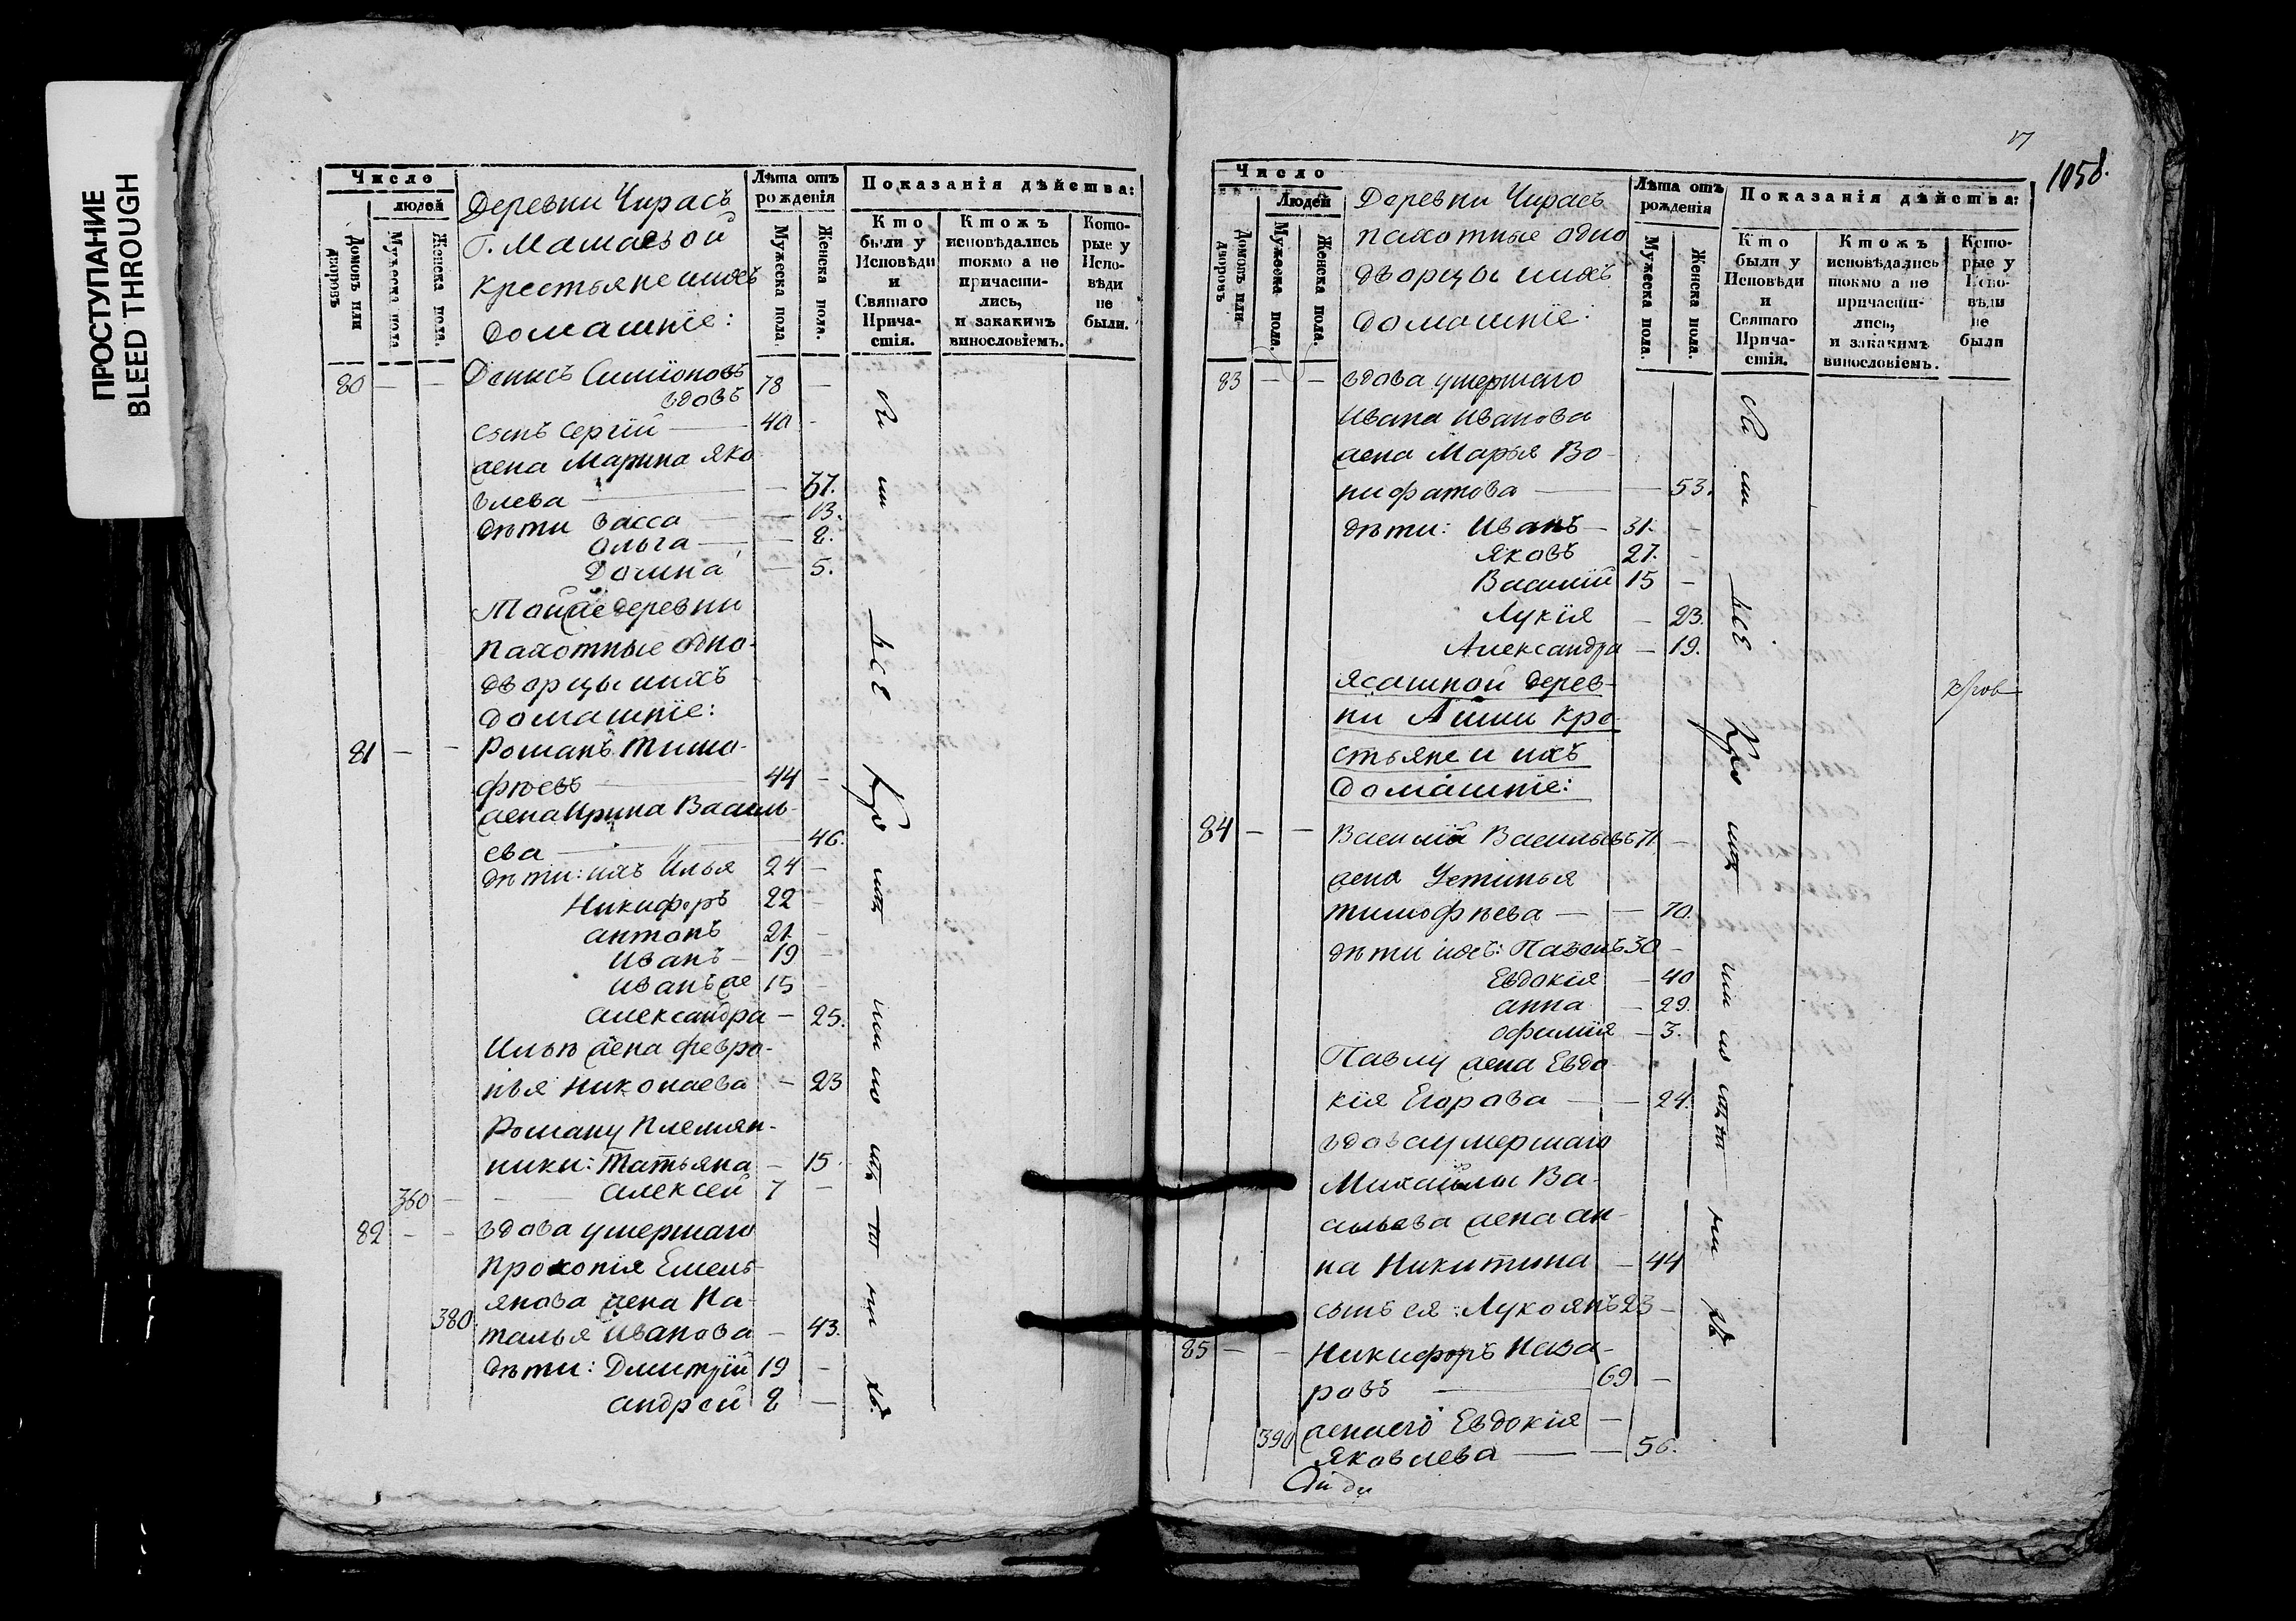 ПРОСТУПАНИЕ
BLEED THROUGH
Число
людей
Домовъ или дворовъ
Мужеска пола
Женска пола.
Деревни Чирасъ
Г. Мамаевой
крестьяне иихъ
домашнїе:
Лѣта отъ рожденія
Мужеска пола
Женска пола.
Показанія дѣйства:
Кто были у Исповѣди и Святаго Прича-стія.
Ктожъ исповѣдались токмо а не причасти-лись, и закакимъ винословіемъ.
Кото-рые у Испо-вѣди не были.
80 — — Денисъ Симїоновъ
вдовъ 78 —
сынъ Сергїй — 40 -
жена Марина Яко
влева — — 37.
дѣти Васса — — 13.
Ольга — — 8.
Домна — 5.
Тойже деревни
пахотные одно-
дворцы иихъ
домашнїе:
81 — — Романъ Тимо-
фѣевъ — 44 —
жена Ирина Василь-
ева — — 46.
дѣти: ихъ Илья 24 —
Никифоръ 22 -
антонъ 21. -
Иванъ — 19 —
Иванъ же 15 -
александра — 25.
Ильѣ жена Февро-
нья Николаева — 23
Роману племян-
ники: Татьяна — 15.
360 — — алексей 7 —
82 — — вдова умершаго
Прокопія Емель-
янова жена На-
380. талья Иванова — 43.
дѣти: Дмитрїй 19 —
андрей 8 —
всѣ
17
1058.
Число
Людей
Домовъ или дворовъ
Мужеска пола.
Женска пола.
Деревни Чирасъ
пахотные одно
дворцы иихъ
домашнїе:
Лѣта отъ рожденія
Мужеска пола.
Женска пола.
Показанія дѣйства:
Кто были у Исповѣди и Святаго Прича-стія.
Ктожъ исповѣдались токмо а не причасти-лись, и закакимъ винословіемъ.
Кото-рые у Испо-вѣди не были
83 — — вдова умершаго
Ивана Иванова
жена Марья Во-
нифатова — — 53.
дѣти: Иванъ — 31. -
Яковъ 27. -
Василїй 15 —
Лукїя — 23.
Александра — 19.
Ясашной дерев-
ни Аиши кре-
стьяне и ихъ
домашнїе:
84 — — Василїй Васильевъ 71. —
жена Устинья
Тимофѣева — — 70.
дѣти ихъ: Павелъ 30 —
Евдокїя — 40
анна — 29.
офимїя — 3.
Павлу жена Евдо
кїя Егорова — — 24.
вдова умершаго
Михайлы Ва-
сильева жена ан-
на Никитина — 44
сынъ ея: Лукоянъ 23 —
85 — — Никифоръ Наза-
ровъ — 69 —
390 жена его Евдокїя —
Яковлева — — 56.
всѣ